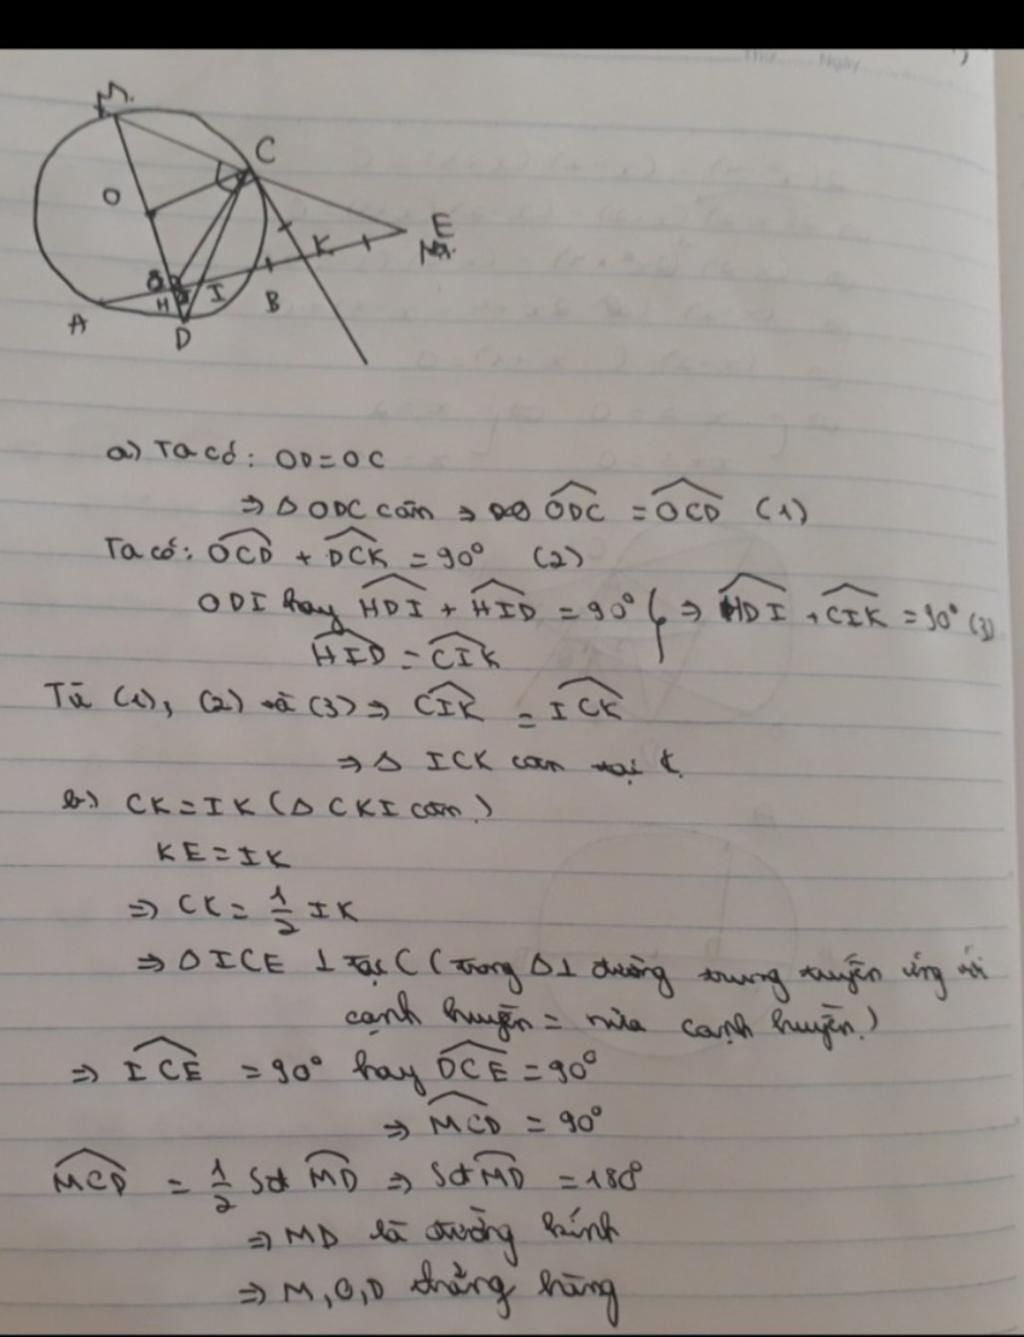 M
C
O
E
K
I
B
H
A
D
a) Ta có: OD = OC
⇒ Δ ODC cân ⇒ ODC = OCD (1)
Ta có: OCD + DCK = 90° (2)
ODI hay HDI + HID = 90° } ⇒ HDI + CIK = 90° (3)
HID = CIK
Từ (1), (2) và (3) ⇒ CIK = ICK
⇒ Δ ICK cân tại K
b) CK = IK (Δ CKI cân)
KE = IK
⇒ CK = 1/2 IK
⇒ Δ ICE ⊥ tại C (trong Δ ⊥ đường trung tuyến ứng với
cạnh huyền = nửa cạnh huyền)
⇒ ICE = 90° hay DCE = 90°
⇒ MCD = 90°
MCD = 1/2 Sđ MD ⇒ Sđ MD = 180°
⇒ MD là đường kính
⇒ M, O, D thẳng hàng